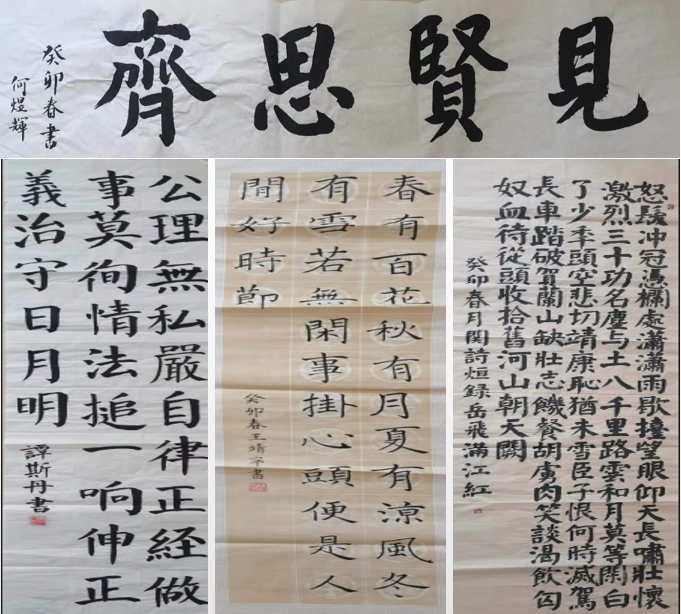 見賢思齊
癸卯春書
何煜輝
公理無私嚴自律正経做
事莫徇情法搥一响伸正
義治守日月明
譚斯丹書
春有百花秋有月夏有涼風冬
有雪若無閑事掛心頭便是人
間好時節
癸卯春王靖宇書
怒髮冲冠憑欄處瀟瀟雨歇擡望眼仰天長嘯壯懷
激烈三十功名塵与土八千里路雲和月莫等閑白
了少年頭空悲切靖康恥猶未雪臣子恨何時滅駕
長車踏破賀蘭山缺壯志饑餐胡虜肉笑談渴飲匈
奴血待從頭收拾舊河山朝天闕
癸卯春月関詩烜録岳飛滿江紅